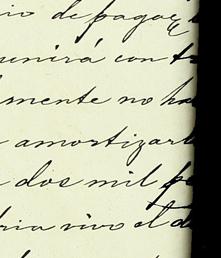 rio de pagar
unirá con tr
lmente no ha
amortizarl
dos mil pe
ria vivo el d